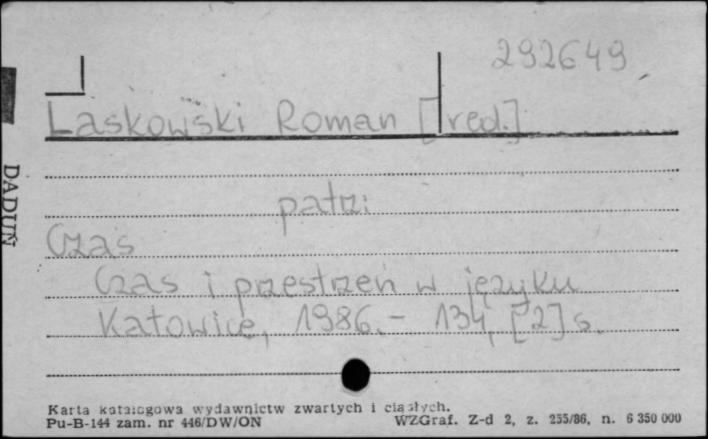 292649
Laskowski Roman [red.]
DADUŃ
patrz:
Czas
Czas i przestrzeń w języku
Katowice, 1986.- 134, [2] s.
Karta katalogowa wydawnictw zwartych i ciągłych.
Pu-B-144 zam. nr 446/DW/ON WZGraf. Z-d 2, z. 255/86, n. 6 350 000